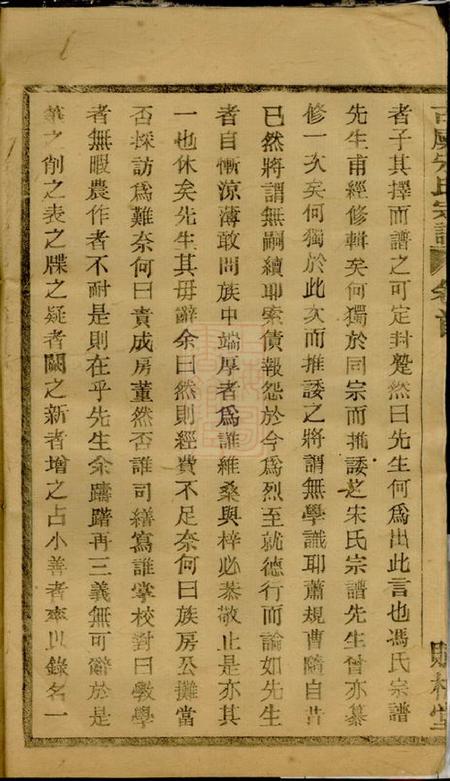 宋氏宗譜
卷首
者子其擇而譜之可定封躄然曰先生何爲出此言也馮氏宗譜
先生甫經修輯矣何獨於同宗而推諉之宋氏宗譜先生曾亦纂
修一次矣何獨於此次而推諉之將謂無學識耶蕭規曹隨自昔
已然將謂無嗣續耶索債報怨於今爲烈至就德行而論如先生
者自慚涼薄敢問族中端厚者爲誰維桑與梓必恭敬止是亦其
一也休矣先生其毋辭余曰然則經費不足奈何曰族房公攤當
否採訪爲難奈何曰責成房董然否誰司繕寫誰掌校對曰教學
者無暇農作者不耐是則在乎先生余躊躇再三義無可辭於是
筆之削之表之牒之疑者闕之新者增之占小善者率以錄名一